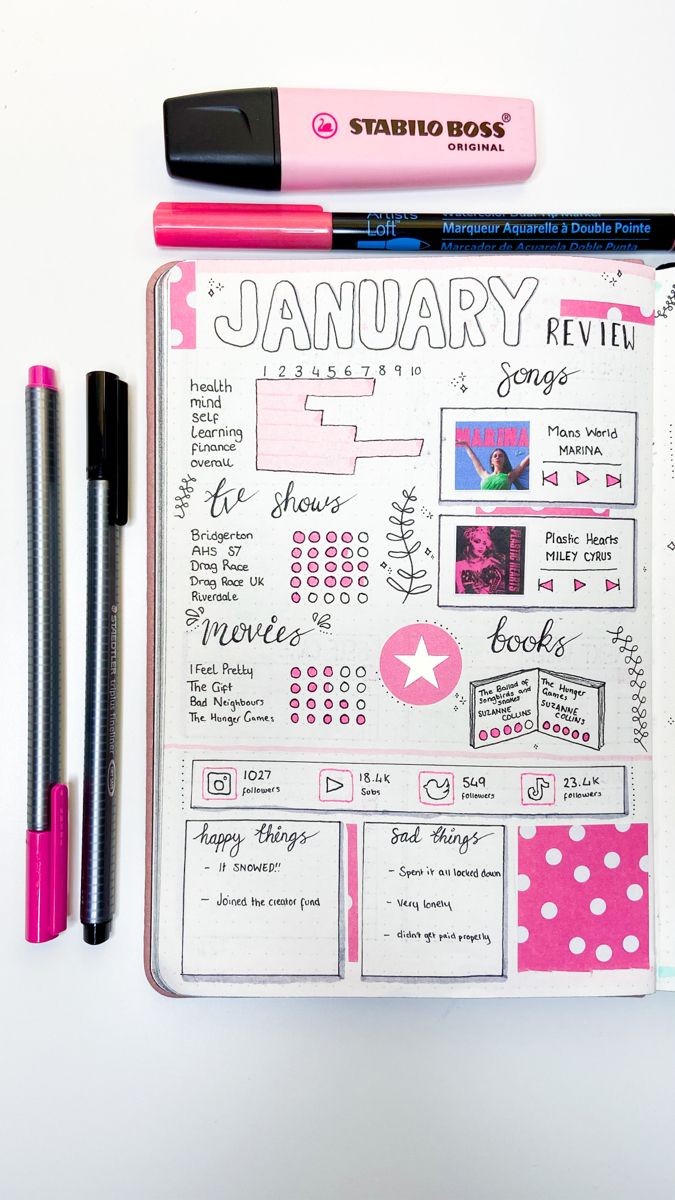 STABILO BOSS®
ORIGINAL
Artist's
Loft™
Watercolor Dual-Tip Marker
Marqueur Aquarelle à Double Pointe
Marcador de Acuarela Doble Punta
STAEDTLER triplus fineliner
JANUARY
REVIEW
1 2 3 4 5 6 7 8 9 10
health
mind
self
learning
finance
overall
songs
MARINA
Mans World
MARINA
PLASTIC HEARTS
Plastic Hearts
MILEY CYRUS
tv shows
Bridgerton
AHS S7
Drag Race
Drag Race UK
Riverdale
movies
I Feel Pretty
The Gift
Bad Neighbours
The Hunger Games
books
The Ballad of
Songbirds and
Snakes
SUZANNE
COLLINS
The Hunger
Games
SUZANNE
COLLINS
1027
followers
18.4K
Subs
549
followers
23.4K
followers
happy things
- It SNOWED!!
- Joined the creator fund
sad things
- Spent it all locked down
- Very lonely
- didn't get paid properly